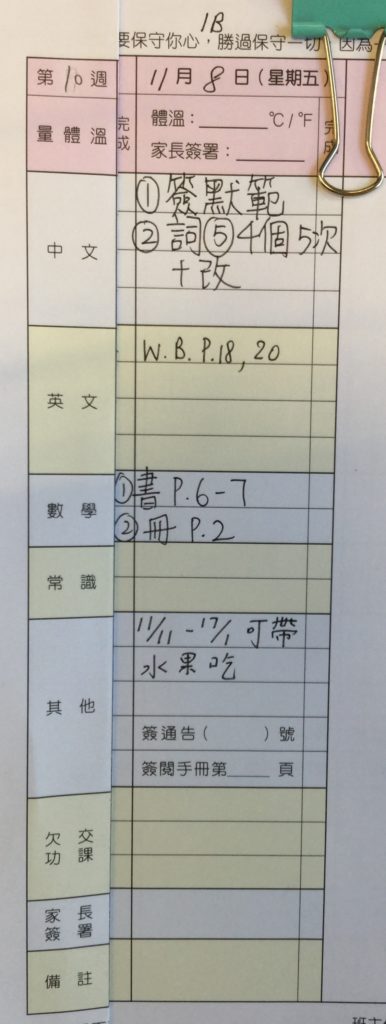 1B
要保守你心，勝過保守一切，因為一
第10週 11月8日(星期五)
量體溫 完成 體溫：______ °C/°F 完成
家長簽署：______
中文 ①簽默範
②詞⑤4個5次
+改
英文 W.B. P.18, 20
數學 ①書 P.6-7
②冊 P.2
常識
其他 11/11 - 17/1 可帶
水果吃
簽通告( )號
簽閱手冊第____頁
欠交功課
家長簽署
備註